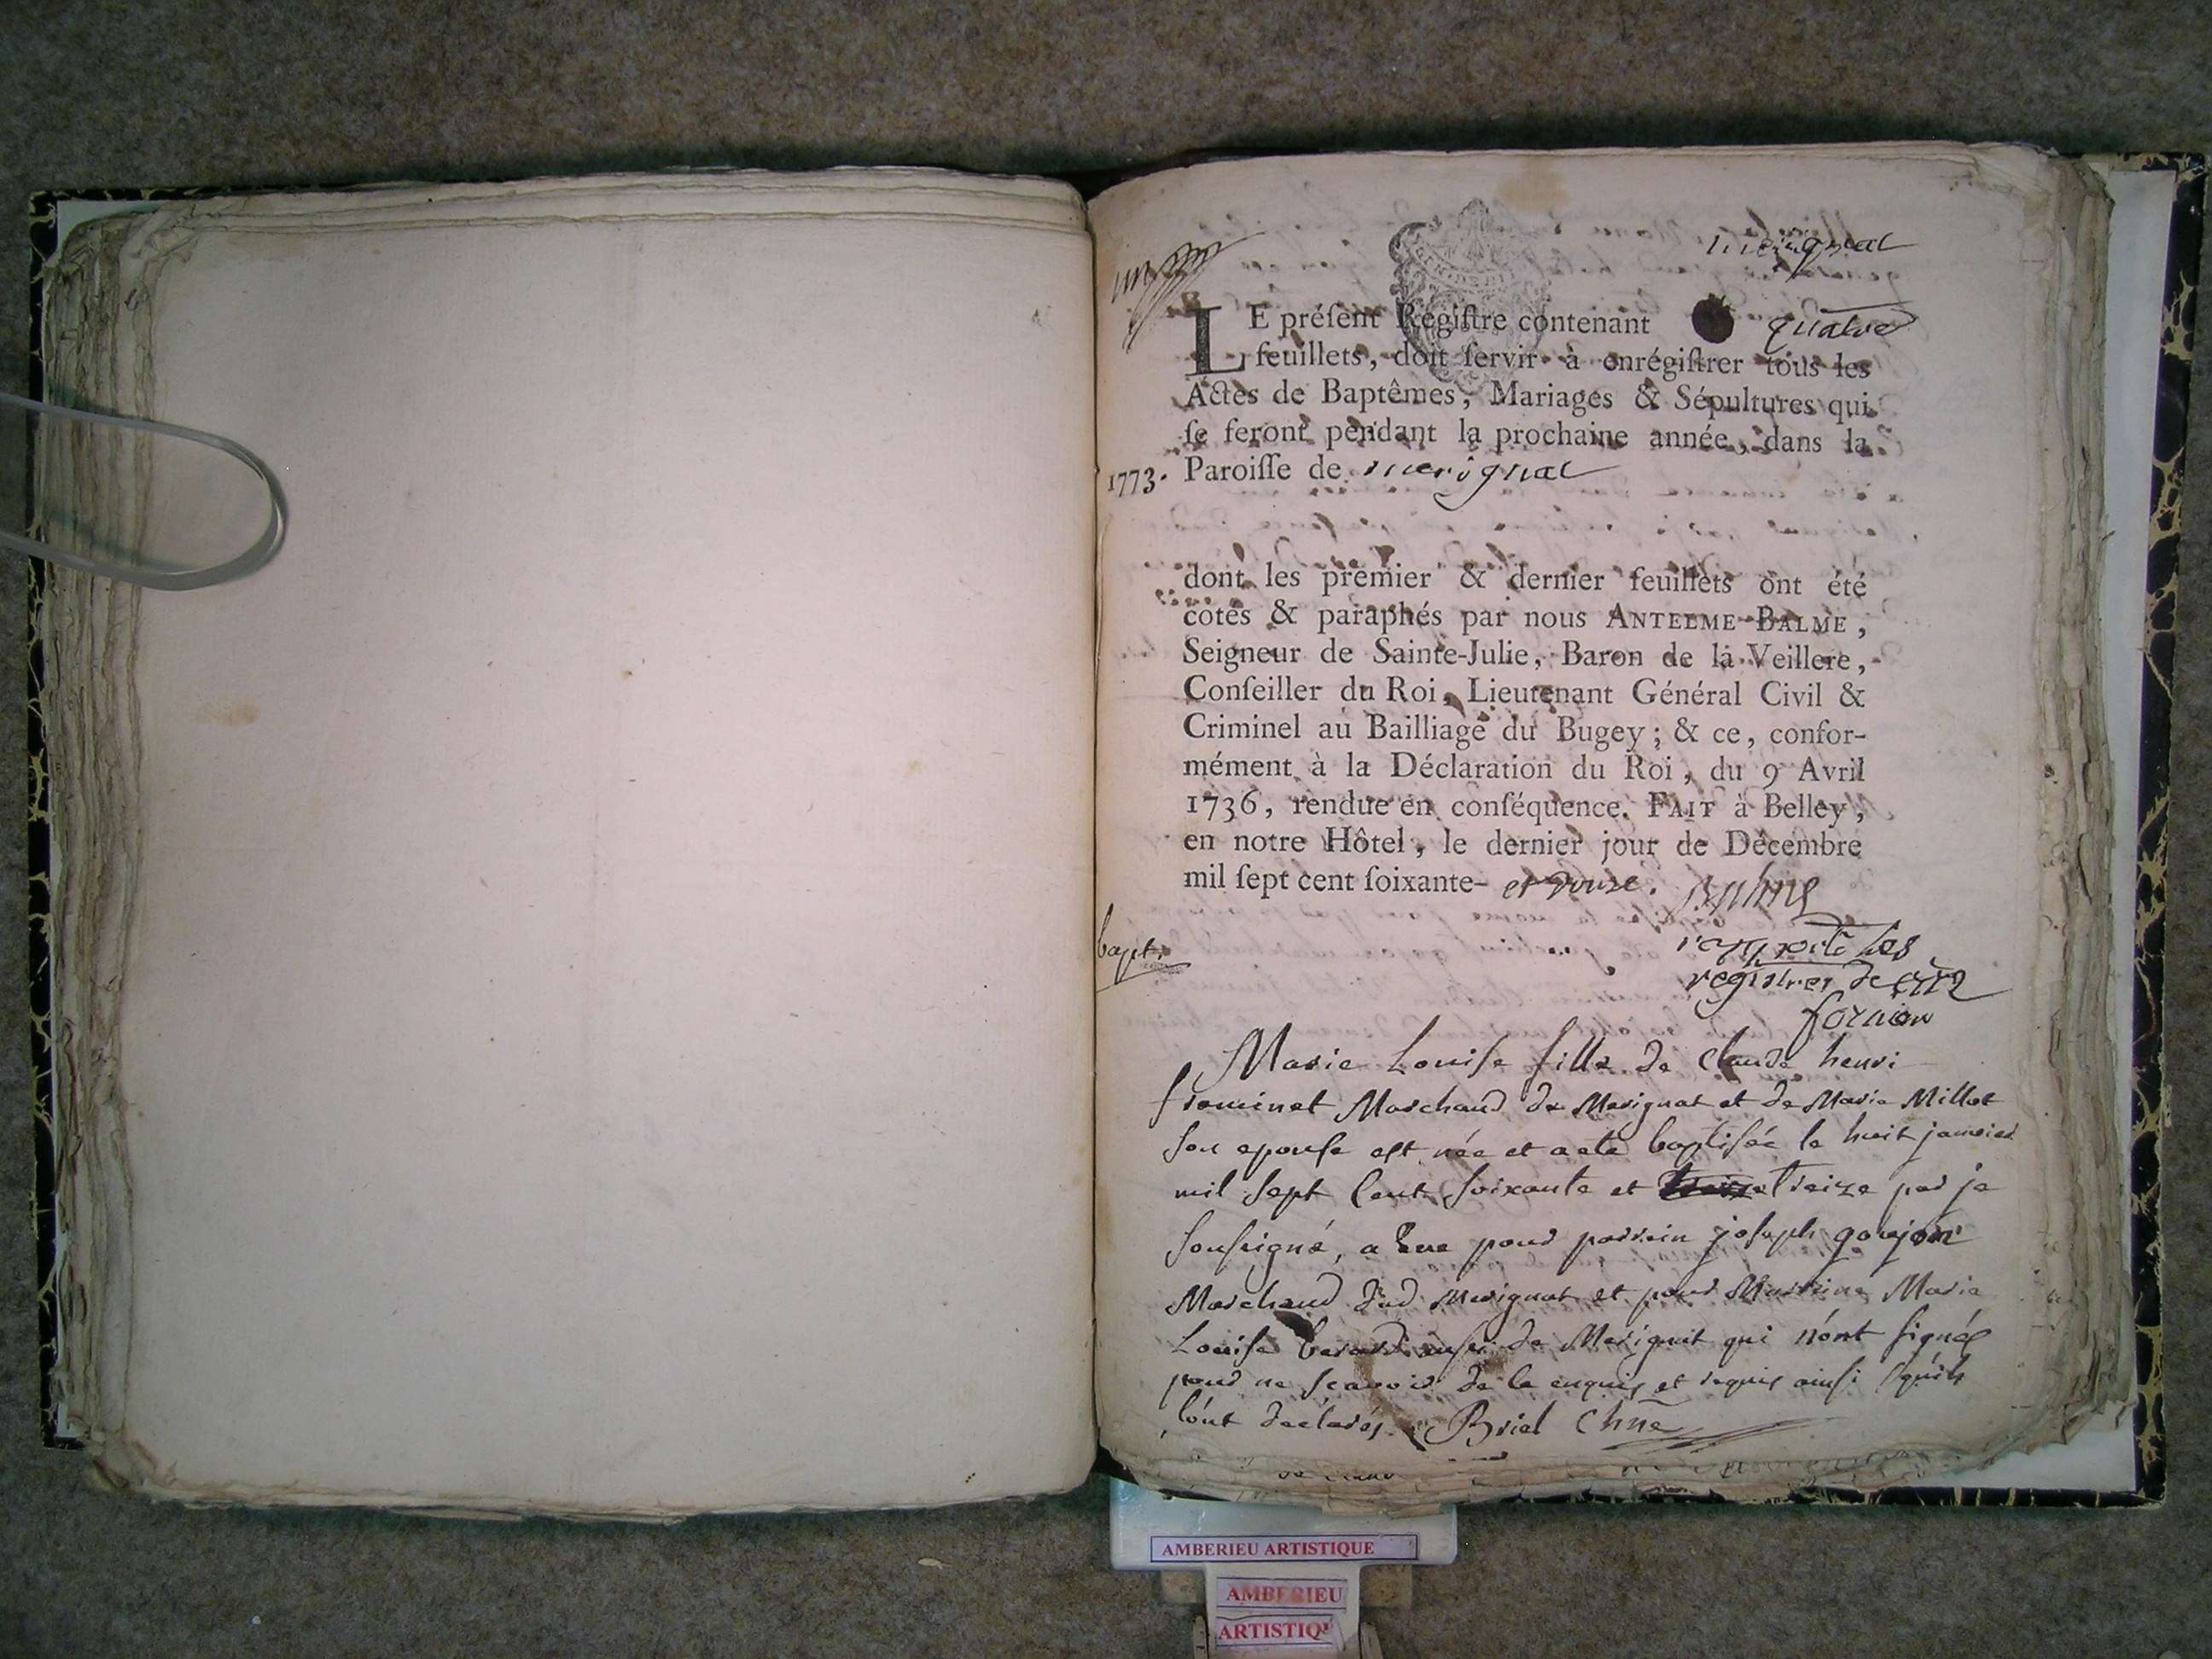 merignat
LE préſent Régiſtre contenant quatre
feuillets, doit ſervir à enrégiſtrer tous les
Actes de Baptêmes, Mariages & Sépultures qui
ſe feront pendant la prochaine année, dans la
1773. Paroiſſe de merignat
dont les premier & dernier feuillets ont été
cotés & paraphés par nous ANTELME BALME,
Seigneur de Sainte-Julie, Baron de la Veillere,
Conſeiller du Roi, Lieutenant Général Civil &
Criminel au Bailliage du Bugey; & ce, confor-
mément à la Déclaration du Roi, du 9 Avril
1736, rendue en conſéquence. FAIT à Belley,
en notre Hôtel, le dernier jour de Décembre
mil ſept cent ſoixante- et douze. Balme
bapt.
raporté les
registres de 1772
Marie Louise fille de Claude henri
frominet Marchand de Merignat et de Marie Millet
son epouse est née et a eté baptisée le huit janvier
mil sept cent soixante et treize par je
soussigné, a eue pour parrein joseph goujon
Marchand dud Merignat et pour Marreine Marie
Louise berard aussi de Merignat qui n'ont signés
pour ne scavoir de ce enquis et requis ainsi qu'ils
l'ont declarés. Briel Chne
AMBERIEU ARTISTIQUE
AMBERIEU
ARTISTIQU